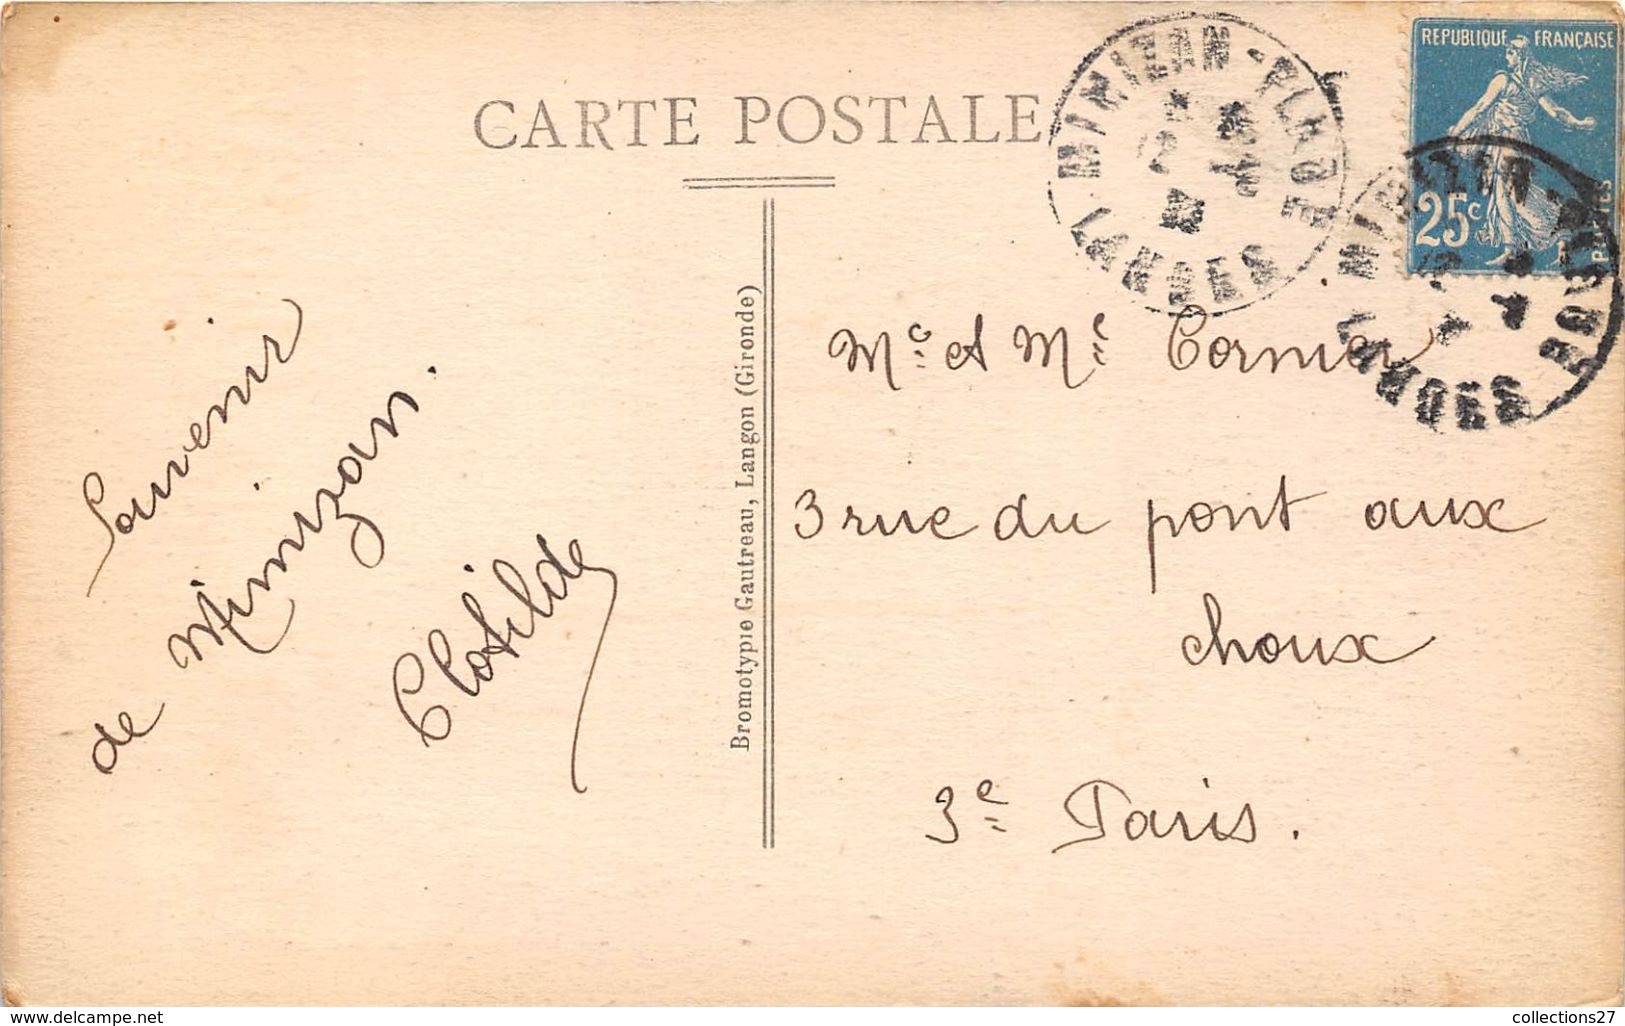 CARTE POSTALE
MIMIZAN-PLAGE
LANDES
REPUBLIQUE FRANÇAISE
25c
POSTES
Souvenir
de Mimizan.
Clotilde
Bromotypie Gautreau, Langon (Gironde)
Mr et Mme Cornier
3 rue du pont aux
choux
3e Paris.
www.delcampe.net
collections27